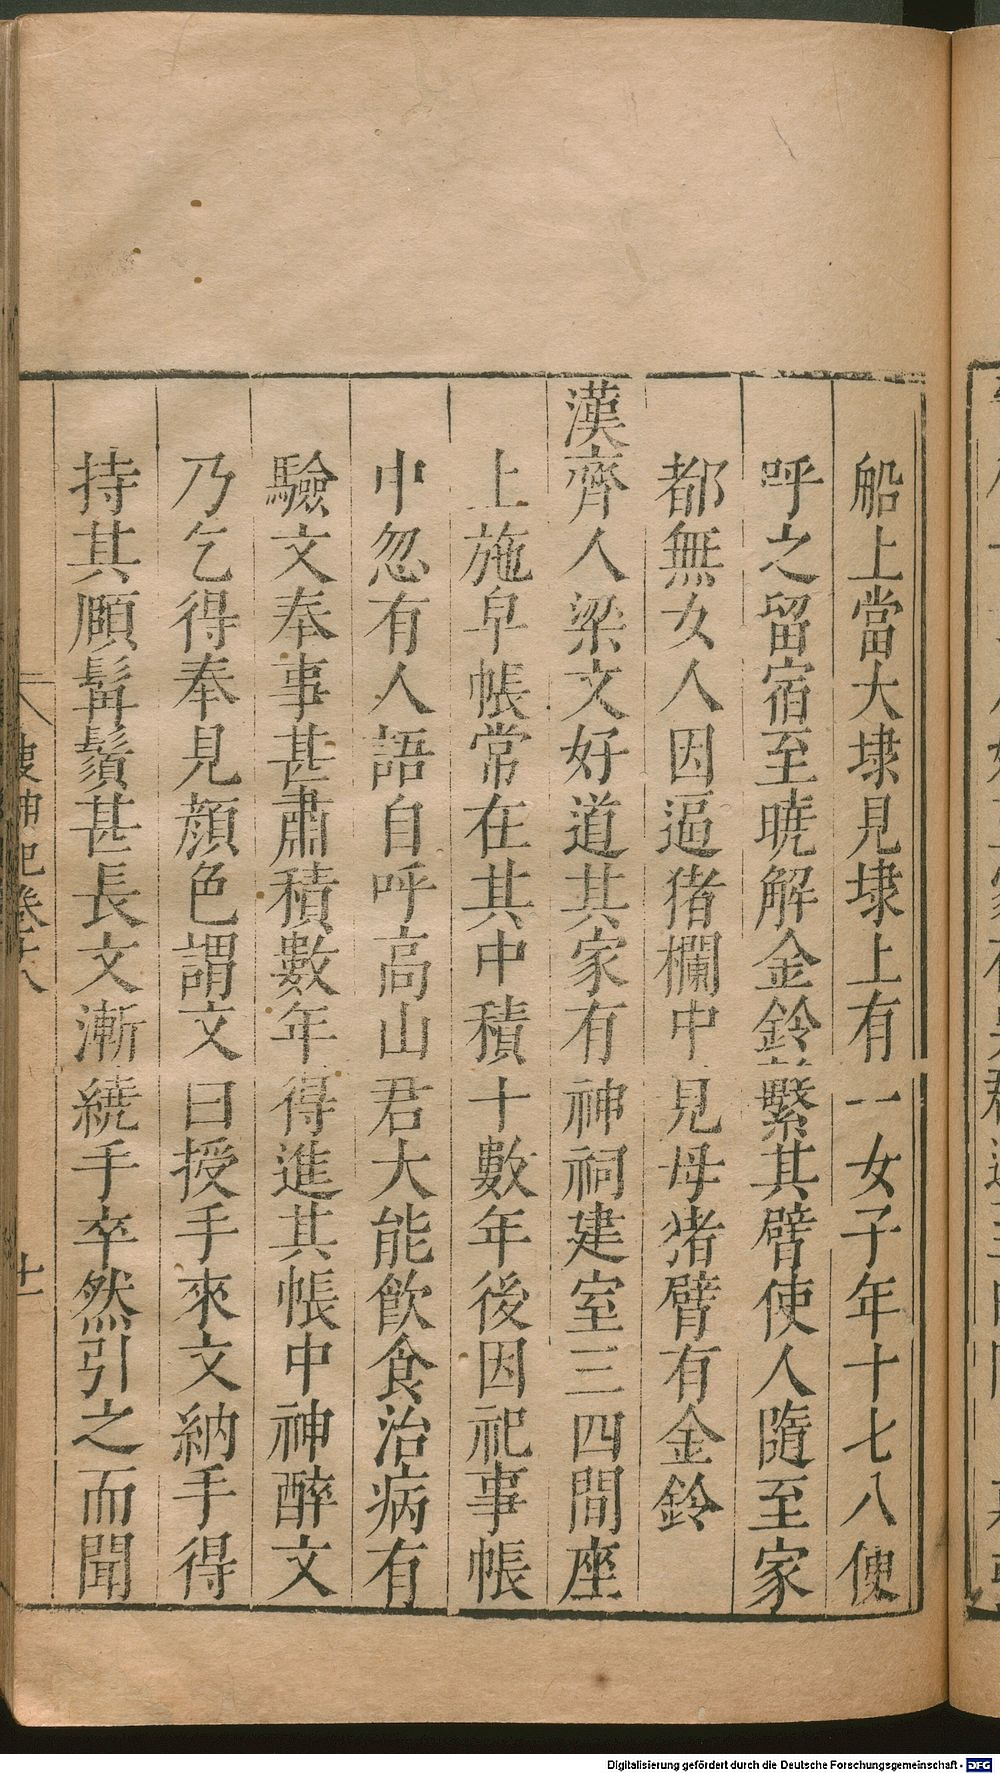 船上當大埭見埭上有一女子年十七八便
呼之留宿至曉解金鈴繫其臂使人隨至家
都無女人因逼猪欄中見母猪臂有金鈴
漢齊人梁文好道其家有神祠建室三四間座
上施皁帳常在其中積十數年後因祀事帳
中忽有人語自呼高山君大能飲食治病有
驗文奉事甚肅積數年得進其帳中神醉文
乃乞得奉見顔色謂文曰授手來文納手得
持其頤髯鬚甚長文漸繞手卒然引之而聞
搜神記卷十八
廿
Digitalisierung gefördert durch die Deutsche Forschungsgemeinschaft - DFG